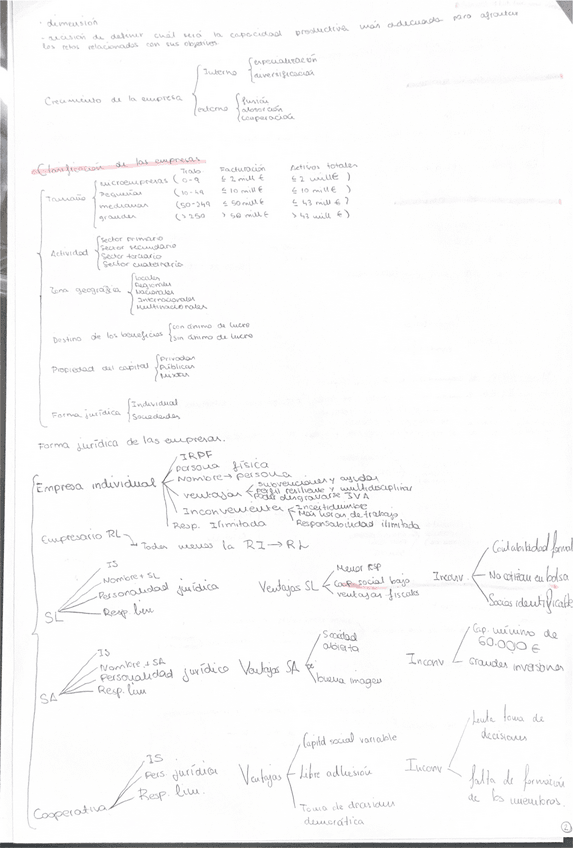 · dimensión
- decisión de definir cuál será la capacidad productiva más adecuada para afrontar
los retos relacionados con sus objetivos
Crecimiento de la empresa
Interno
especialización
diversificación
externo
fusión
absorción
cooperación
Clasificación de las empresas
Trab. Facturación Activos totales
Tamaño
microempresas (0-9 ≤ 2 mill € ≤ 2 mill €)
Pequeñas (10-49 ≤ 10 mill € ≤ 10 mill €)
medianas (50-249 ≤ 50 mill € ≤ 43 mill €)
grandes (>250 > 50 mill € > 43 mill €)
Actividad
Sector primario
Sector secundario
Sector terciario
Sector cuaternario
Zona geográfica
locales
Regionales
Nacionales
Internacionales
Multinacionales
Destino de los beneficios
con ánimo de lucro
sin ánimo de lucro
Propiedad del capital
Privadas
Públicas
Mixtas
Forma jurídica
Individual
Sociedades
Forma jurídica de las empresas.
Empresa individual
IRPF
persona física
Nombre → persona
ventajas
subvenciones y ayudas
Perfil resiliente y multidisciplinar
Poder desgravarse IVA
Inconvenientes
Incertidumbre
Más horas de trabajo
Responsabilidad ilimitada
Resp. Ilimitada
Empresario RL
Todo menos la RI → RL
SL
IS
Nombre + SL
Personalidad jurídica
Resp lim
Ventajas SL
Menor
Cap. social bajo
ventajas fiscales
Inconv
Contabilidad formal
No cotizan en bolsa
Socios identificable
SA
IS
Nombre + SA
Personalidad jurídico
Resp. lim
Ventajas SA
Sociedad
abierta
buena imagen
Inconv
Cap. mínimo de
60.000 €
Grandes inversiones
Cooperativa
IS
Pers jurídica
Resp. lim.
Ventajas
Capital social variable
Libre adhesión
Toma de decisiones
democrática
Inconv
Lenta toma de
decisiones
falta de formación
de los miembros.
2